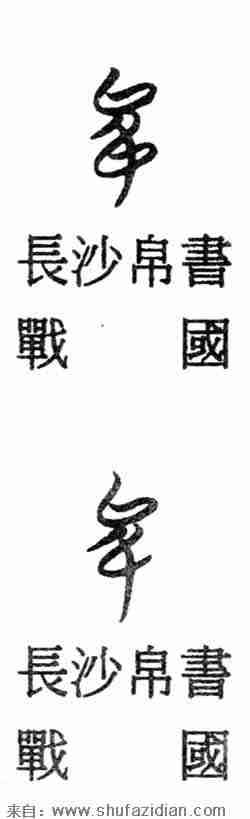 長沙帛書
戰國
長沙帛書
戰國
来自：www.shufazidian.com